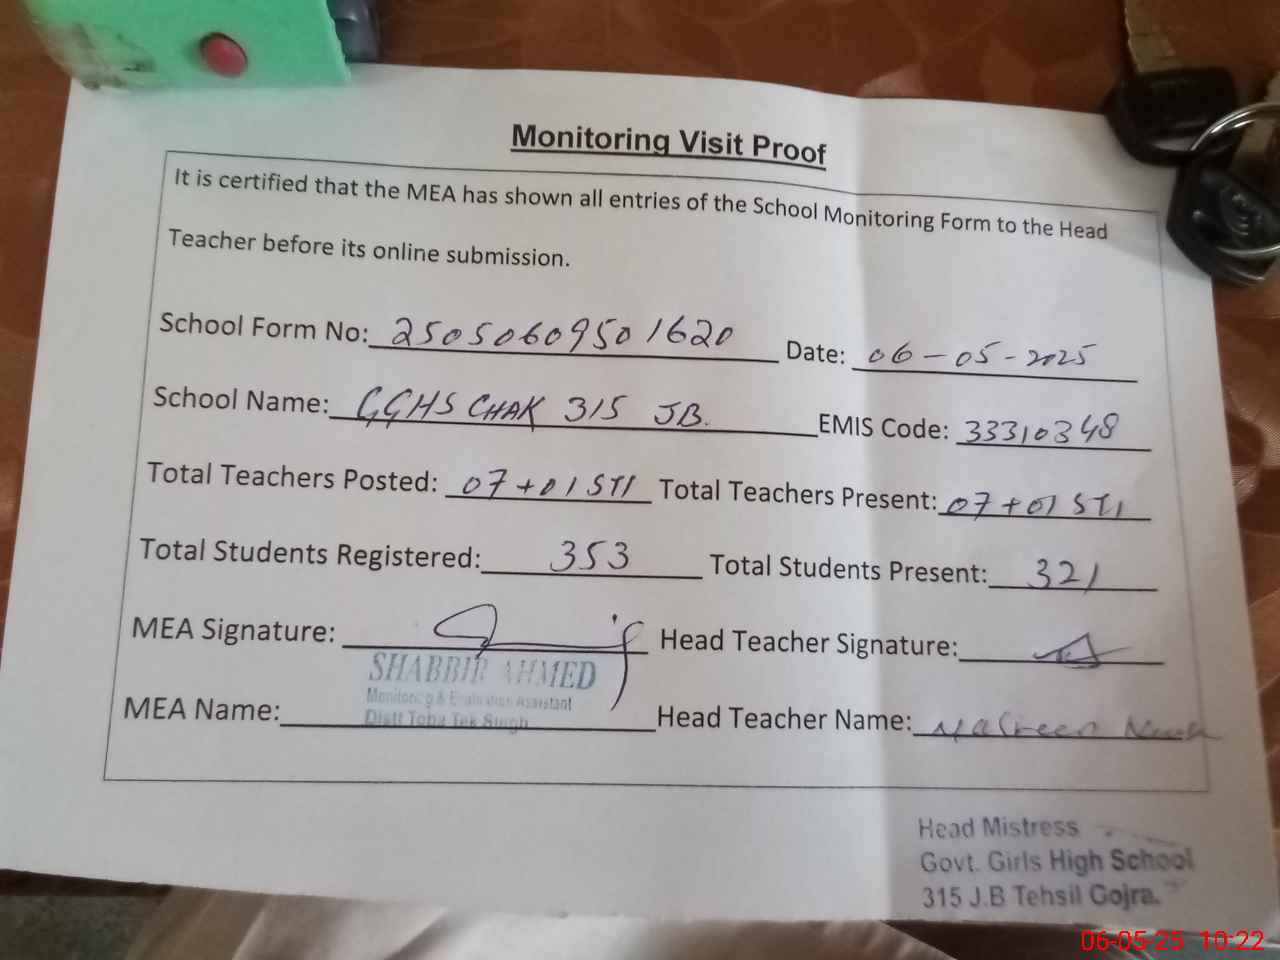 Monitoring Visit Proof
It is certified that the MEA has shown all entries of the School Monitoring Form to the Head
Teacher before its online submission.
School Form No: 25050609501620 Date: 06-05-2025
School Name: GGHS CHAK 315 JB. EMIS Code: 33310348
Total Teachers Posted: 07+01 STI Total Teachers Present: 07+01 STI
Total Students Registered: 353 Total Students Present: 321
MEA Signature: Head Teacher Signature:
SHABBIR AHMED
Monitoring & Evaluation Assistant
Distt Toba Tek Singh
MEA Name: Head Teacher Name: Nasreen
Head Mistress
Govt. Girls High School
315 J.B Tehsil Gojra.
06-05-25 10:22